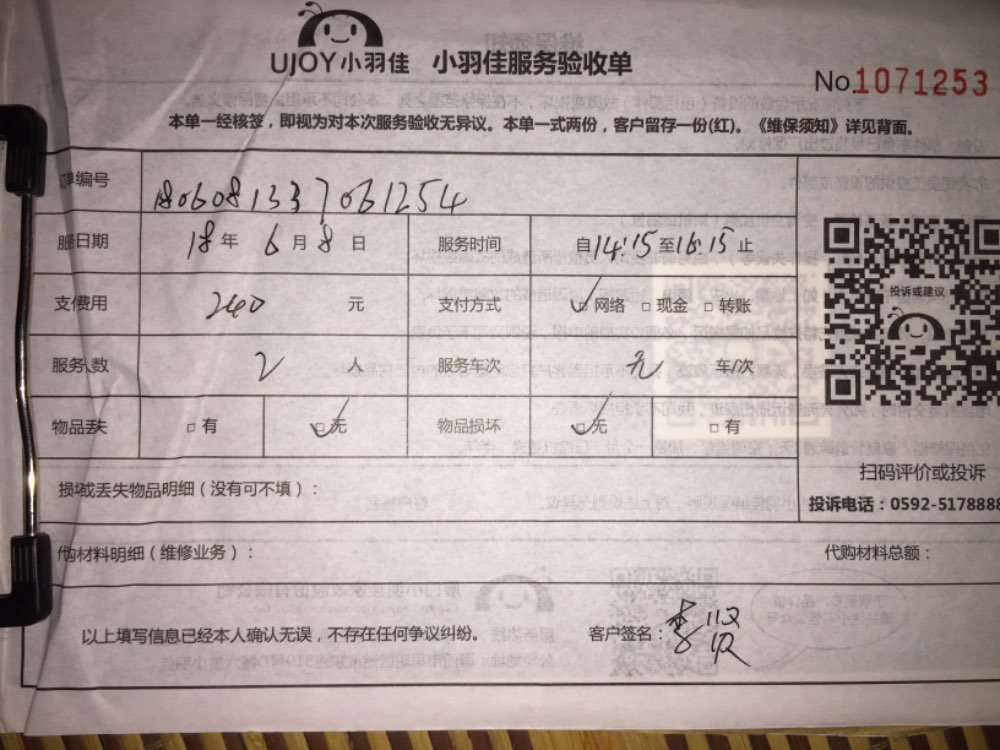 UJOY小羽佳 小羽佳服务验收单
No.1071253
本单一经核签，即视为对本次服务验收无异议。本单一式两份，客户留存一份(红)。《维保须知》详见背面。
单编号 1806081337061254
服务日期 18 年 6 月 8 日 服务时间 自14:15至16:15止
支付费用 240 元 支付方式 ☑网络 □现金 □转账
服务人数 2 人 服务车次 无 车/次
物品丢失 □有 ☑无 物品损坏 ☑无 □有
投诉或建议
扫码评价或投诉
投诉电话：0592-5178888
损坏或丢失物品明细（没有可不填）：
代购材料明细（维修业务）： 代购材料总额：
以上填写信息已经本人确认无误，不存在任何争议纠纷。 客户签名：李